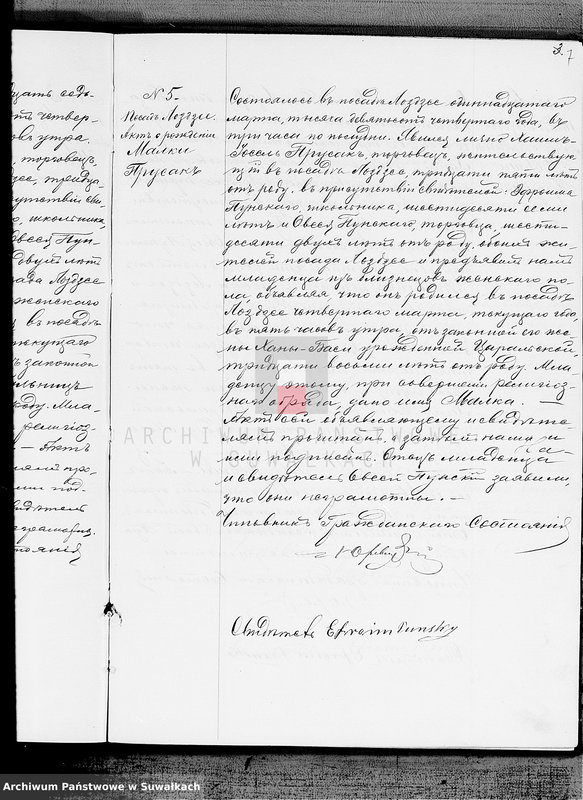 3. 7
дцать седь-
четвер-
утра.
торговецъ
тридца-
школьника,
Овсея Пун-
двухъ лѣтъ
Лоздзее
женскаго
въ посадѣ
текущаго
законной
роду. Мла-
религіоз-
— Актъ
N 5.
Посадъ Лоздзее.
Актъ о рожденіи
Малки
Прусакъ
Состоялось въ посадѣ Лоздзее одиннадцатаго
марта, тысяча девятьсотъ четвертаго года, въ
три часа по полудни. Явился лично Хаимъ-
Іосель Прусакъ, торговецъ, жительствую-
щій въ посадѣ Лоздзее, тридцати пяти лѣтъ
отъ роду, въ присутствіи свидѣтелей: Эфроима
Пунскаго, школьника, шестидесяти семи
лѣтъ и Овсея Пунскаго, торговца, шести-
десяти двухъ лѣтъ отъ роду, обоихъ жи-
телей посада Лоздзее и предъявилъ намъ
младенца изъ близнецовъ женскаго по-
ла, объявляя что онъ родился въ посадѣ
Лоздзее четвертаго марта, текущаго года,
въ пять часовъ утра, отъ законной его же-
ны Ханы-Баси урожденной
тридцати восьми лѣтъ отъ роду. Мла-
денцу этому, при совершеніи религіоз-
наго обряда, дано имя Малка. —
Актъ сей объявляющему и свидѣте-
лямъ прочитанъ, а затѣмъ нами и
ими подписанъ. Отецъ младенца
и свидѣтель Овсей Пунскій заявили,
что они неграмотны. —
Чиновникъ Гражданскаго Состоянія
Свидѣтель Efroim Punsky
ARCHIWUM PAŃSTWOWE
W SUWAŁKACH
Archiwum Państwowe w Suwałkach